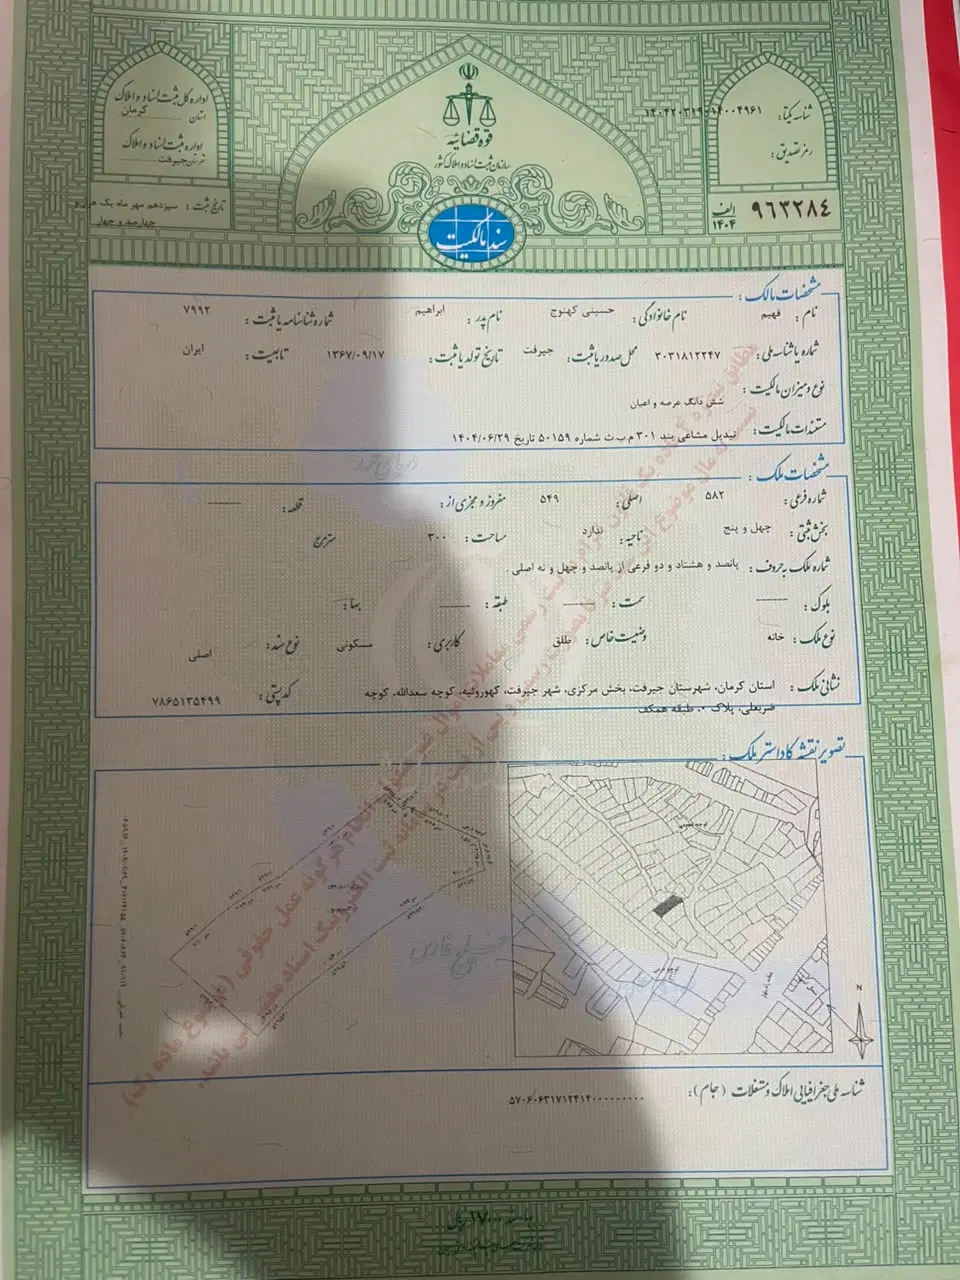 اداره کل ثبت اسناد و املاک
استان کرمان
اداره ثبت اسناد و املاک
شهرستان جیرفت
تاریخ ثبت : سیزدهم مهر ماه یک هزار و
چهارصد و چهار
قوه قضائیه
سازمان ثبت اسناد و املاک کشور
سند مالکیت
شناسه یکتا : ۱۴۰۴۲۰۳۱۹۰۱۴۰۰۴۹۶۱
رمز تصدیق :
۹۶۳۲۸۴ الف ۱۴۰۴
مشخصات مالک :
نام : فهیم نام خانوادگی : حسینی کهنوج نام پدر : ابراهیم شماره شناسنامه یا ثبت : ۷۹۹۲
شماره یا شناسه ملی : ۳۰۳۱۸۱۲۲۴۷ محل صدور یا ثبت : جیرفت تاریخ تولد یا ثبت : ۱۳۶۷/۰۹/۱۷ تابعیت : ایران
نوع و میزان مالکیت : شش دانگ عرصه و اعیان
مستندات مالکیت : تبدیل مشاعی بند ۳۰۱ م.ب.ث شماره ۵۰۱۵۹ تاریخ ۱۴۰۴/۰۶/۲۹
مشخصات ملک :
شماره فرعی : ۵۸۲ اصلی : ۵۴۹ مفروز و مجزی از : قطعه :
بخش ثبتی : چهل و پنج ناحیه : ندارد مساحت : ۳۰۰ مترمربع
شماره ملک به حروف : پانصد و هشتاد و دو فرعی از پانصد و چهل و نه اصلی .
بلوک : سمت : طبقه : بهاء :
نوع ملک : خانه وضعیت خاص : طلق کاربری : مسکونی نوع سند : اصلی
نشانی ملک : استان کرمان، شهرستان جیرفت، بخش مرکزی، شهر جیرفت، کهوروئیه، کوچه سعدالله، کوچه
ضربعلی، پلاک ۰، طبقه همکف
کد پستی : ۷۸۶۵۱۳۵۴۹۹
تصویر نقشه کاداستر ملک :
خلیج فارس
N
شناسه ملی جغرافیایی املاک و مستغلات (جام) : ۵۷۰۶۰۶۳۱۷۱۲۴۱۴۰۰۰۰۰۰۰۰۰